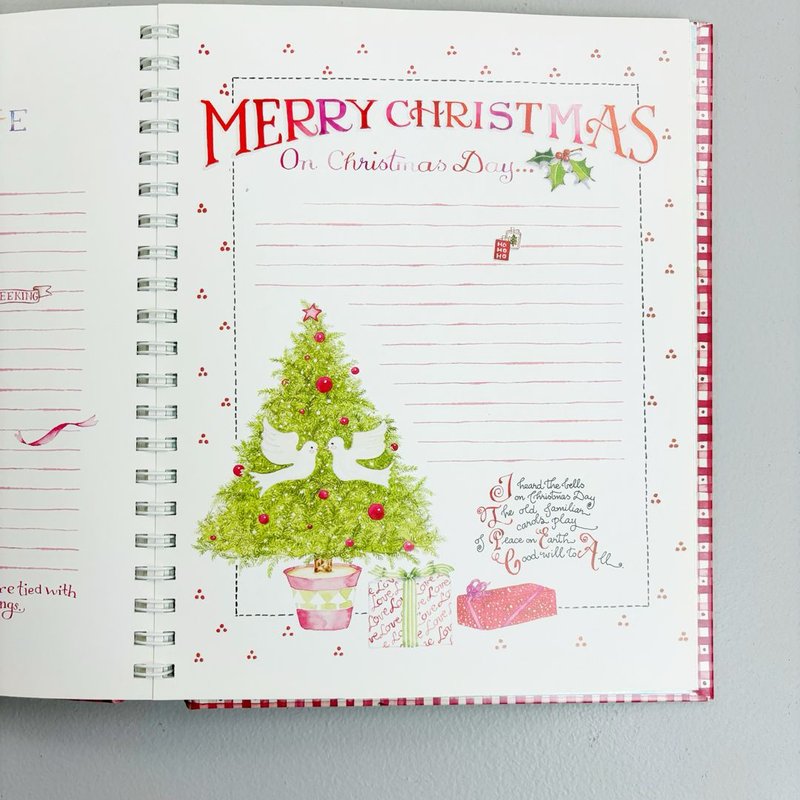 E
EEKING
re tied with
ngs.
MERRY CHRISTMAS
On Christmas Day...
HO
HO
HO
I heard the bells
on Christmas Day
The old familiar
carols play
of Peace on Earth
Good will to All.
Love Love
Love Love
Love Love
Love Love